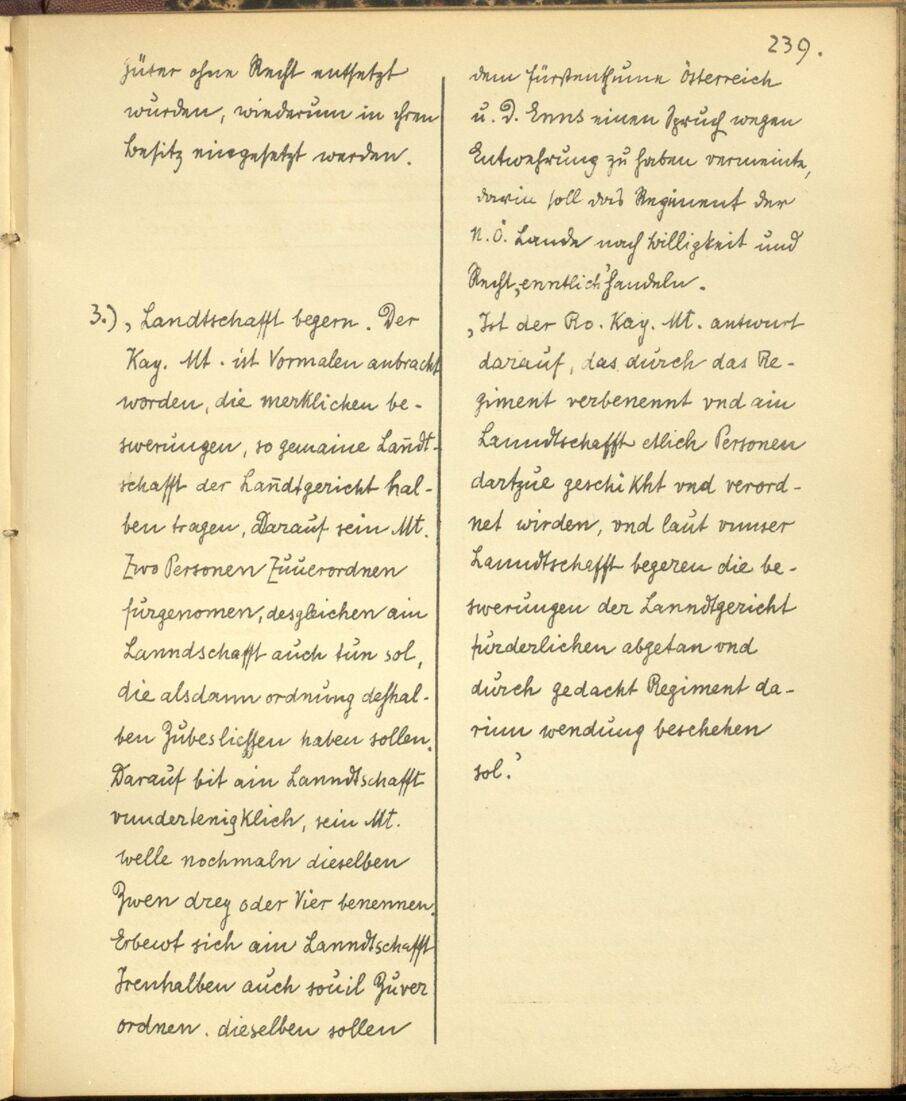 239.
Güter ohne Recht entsetzt
wurden, wiederum in ihren
Besitz eingesetzt werden.
3.) „Landtschafft begern. Der
Kay. Mt. ist Vormalen anbracht
worden, die merklichen be-
swerungen, so gemaine Lan̄dt-
schafft der Lan̄dtgericht hal-
ben tragen, Darauf sein Mt.
Zwo Personen Zuuerordnen
furgenomen, desgleichen ain
Lanndschafft auch tun sol,
die alsdann ordnung deshal-
ben Zubesliessen haben sollen.
Darauf bit ain Lanndtschafft
vundertenigklich, sein Mt.
welle nochmaln dieselben
Zwen drey oder Vier benennen.
Erbewt sich ain Lanndtschafft
Irenhalben auch souil Zuver
ordnen. dieselben sollen
dem Fürstenthume Österreich
u. d. Enns einen Spruch wegen
Entwehrung zu haben vermeinte,
darin soll das Regiment der
n.ö. Lande nach Billigkeit und
Recht „enntlich“ handeln.
„Ist der Ro. Kay. Mt. antwurt
darauf, das durch das Re-
giment verbenennt vnd ain
Lanndtschafft etlich Personen
dartzue geschikht vnd verord-
net wirden, vnd laut vnnser
Lanndtschefft begeren die be-
swerungen der Lanndtgericht
furderlichen abgetan vnd
durch gedacht Regiment da-
rinn wendung beschehen
sol.“